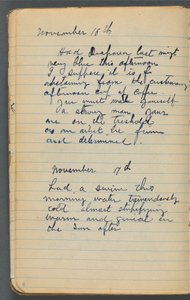 November 18th
Had
very blue this afternoon
I suppose it is of
abstaining from the customary
afternoon cup of coffee
You must make yourself
a strong man your
are on the threshold
so must be firm
and determined.
November 17th
Had a swim this
morning water tremendously
cold almost stupefying
warm and quiet in
the sun after